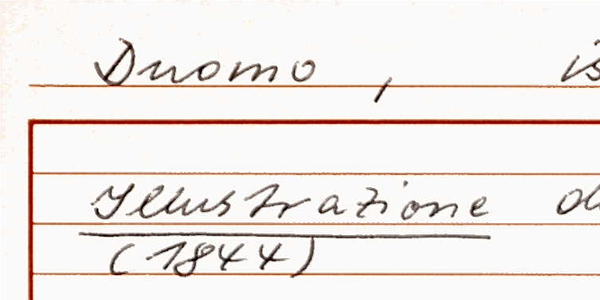 Duomo, is
Illustrazione d
(1844)